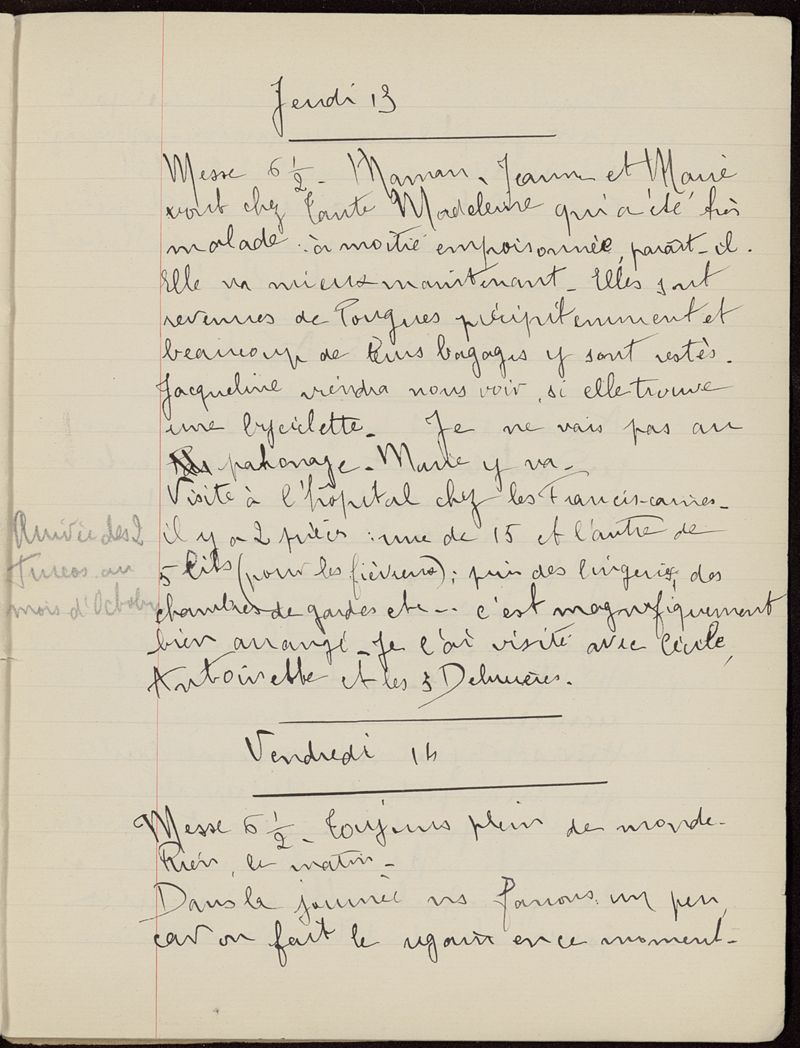 Jeudi 13
Messe 6 1/2 - Maman, Jeanne et Marie
vont chez Tante Madeleine qui a été très
malade : à moitié empoisonnée, paraît-il.
Elle va mieux maintenant - Elles sont
revenues de Pougues précipitemment et
beaucoup de leurs bagages y sont restés.
Jacqueline viendra nous voir, si elle trouve
une bycielette - Je ne vais pas au
patronage - Marie y va -
Visite à l'hôpital chez les Franciscaines -
il y a 2 pièces : une de 15 et l'autre de
5 lits (pour les fiévreux) ; puis des lingeries, des
chambres de gardes etc -- c'est magnifiquement
bien arrangé - Je l'ai visité avec Cécile,
Antoinette et les 3
Arrivée des 2
Turcos au
mois d'Octobre
Vendredi 14
Messe 6 1/2 - toujours plein de monde -
Rien, le matin -
Dans la journée ns fanons un peu,
car on fait le regain en ce moment -